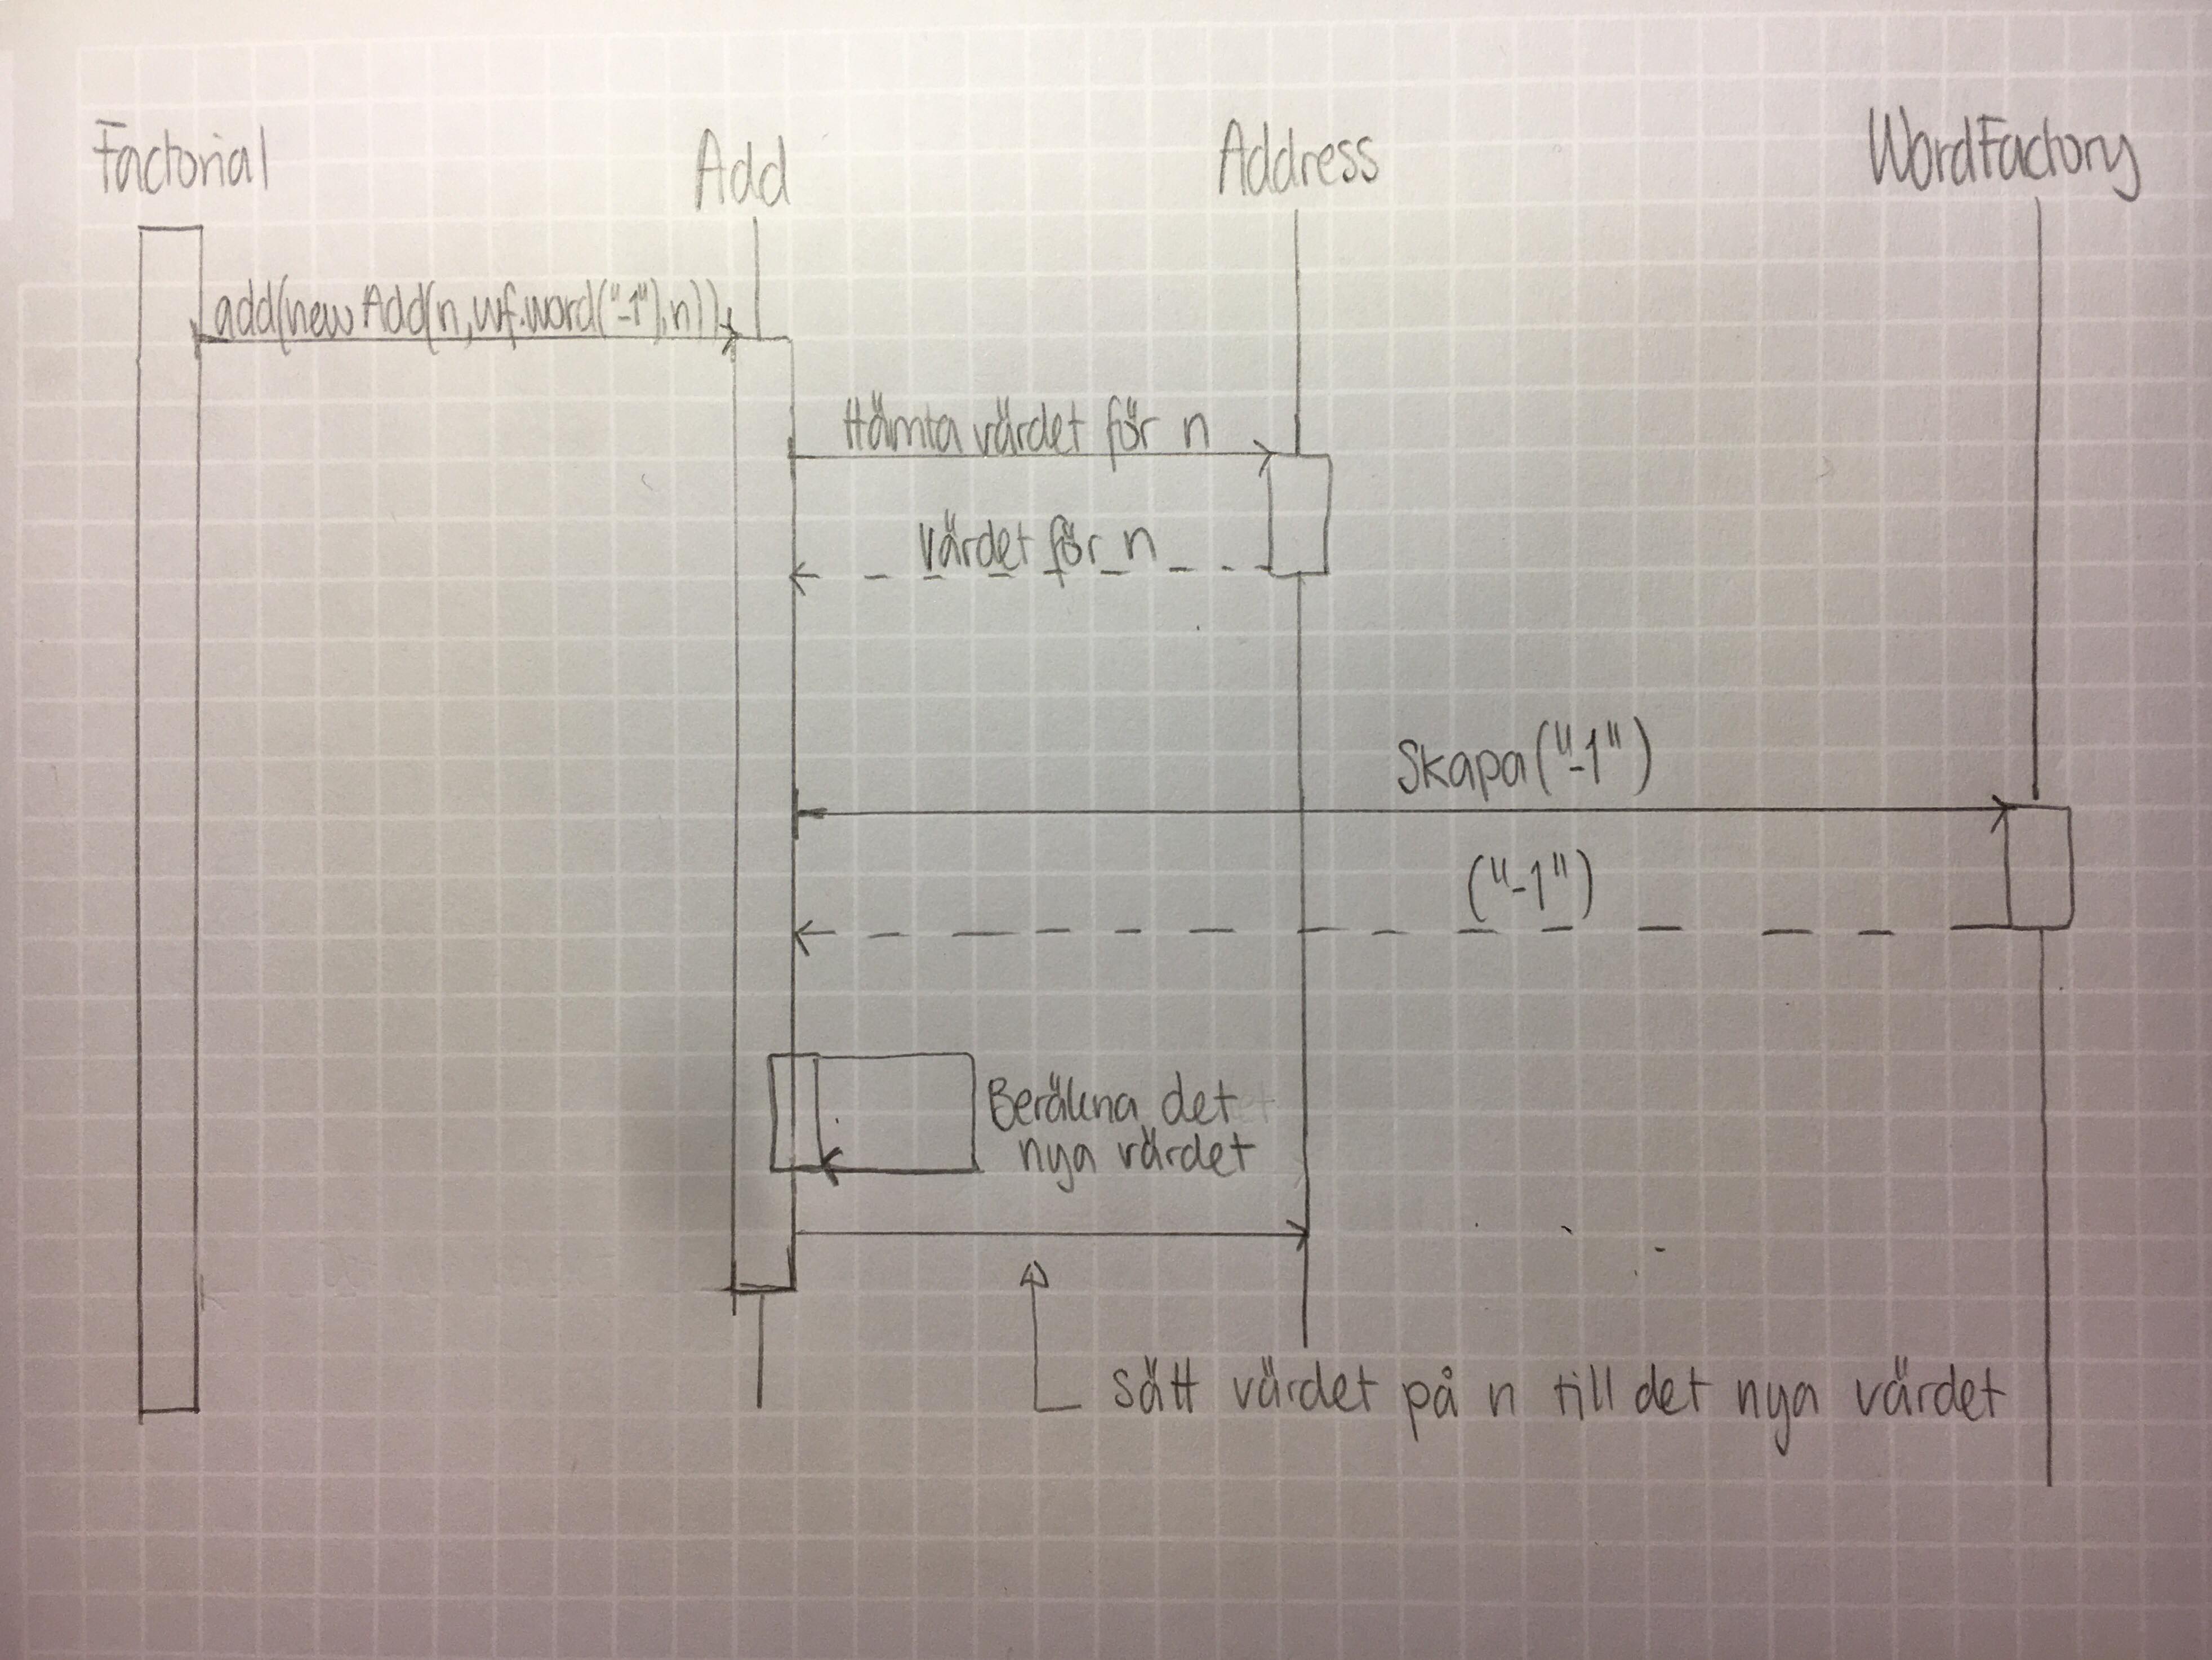 Factorial
Add
Address
WordFactory
add(new Add(n,wf.word("-1"),n))
Hämta värdet för n
Värdet för n
Skapa("-1")
("-1")
Beräkna det
nya värdet
sätt värdet på n till det nya värdet